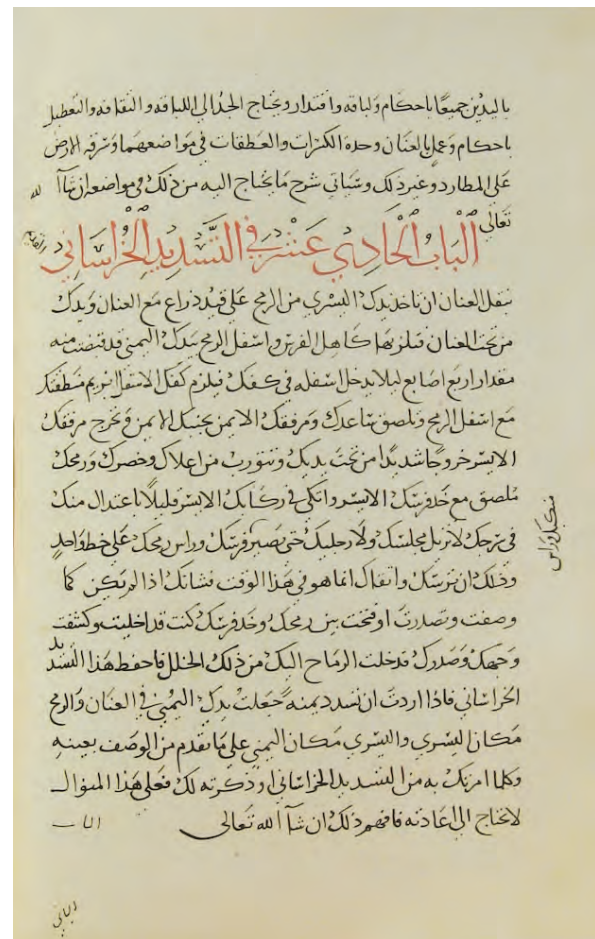 باليدين جميعًا باحكام ولباقه واقتدار ويحتاج الجدالي اللباقه و الثقافه والتعطيل
باحكام وعمل بالعنان وحدة الكرات والعطفات في مواضعهما وسرقه الارض
على المطارد وغير ذلك وسياتي شرح ما يحتاج اليه من ذلك في مواضعه ان شاآ لله
تعالى
الباب الحادي عشر في التسديد الخراساني
تنقل العنان ان تاخذ بيدك اليسرى من الرمح على قيد ذراع مع العنان ويدك
من تحت العنان فتلز بها كاهل الفرس واسفل الرمح بيدك اليمنى قد قبضت منه
مقدار اربع اصابع ليلا يدخل اسفله في كفك فيلزم كفك الاسفل ابزيم منطقتك
مع اسفل الرمح وتلصق ساعدك ومرفقك الايمن بجنبك الايمن وتخرج مرفقك
الايسر خروجًا شديدًا من تحت يديك وتتورب من اعلاك وخصرك ورمحك
ملصق مع خد فرسك الايسر واتكي في ركابك الايسر قليلًا باعتدال منك
في سرجك لا تزيل مجلسك ولا رجليك حتى يصير فرسك وراس رمحك على خط واحد
منكبك وراس
وذلك ان ترسك واتقاك انما هو في هذا الوقت فشانك اذا لم تكن كما
وصفت وتصدرت او فتحت بين رمحك وخد فرسك كنت قد اخليت وكشفت
وجهك وصدرك فدخلت الرماح اليك من ذلك الخلل فاحفظ هذا التسديد
الخراساني فاذا اردت ان تسدد يمنه جعلت يدك اليمنى في العنان والرمح
مكان اليسرى واليسرى مكان اليمنى على ما تقدم من الوصف بعينه
وكلما امرتك به من التسديد الخراساني او ذكرته لك فعلى هذا المنوال
لا تحتاج الى اعادته فافهم ذلك ان شاآ الله تعالى
الباب